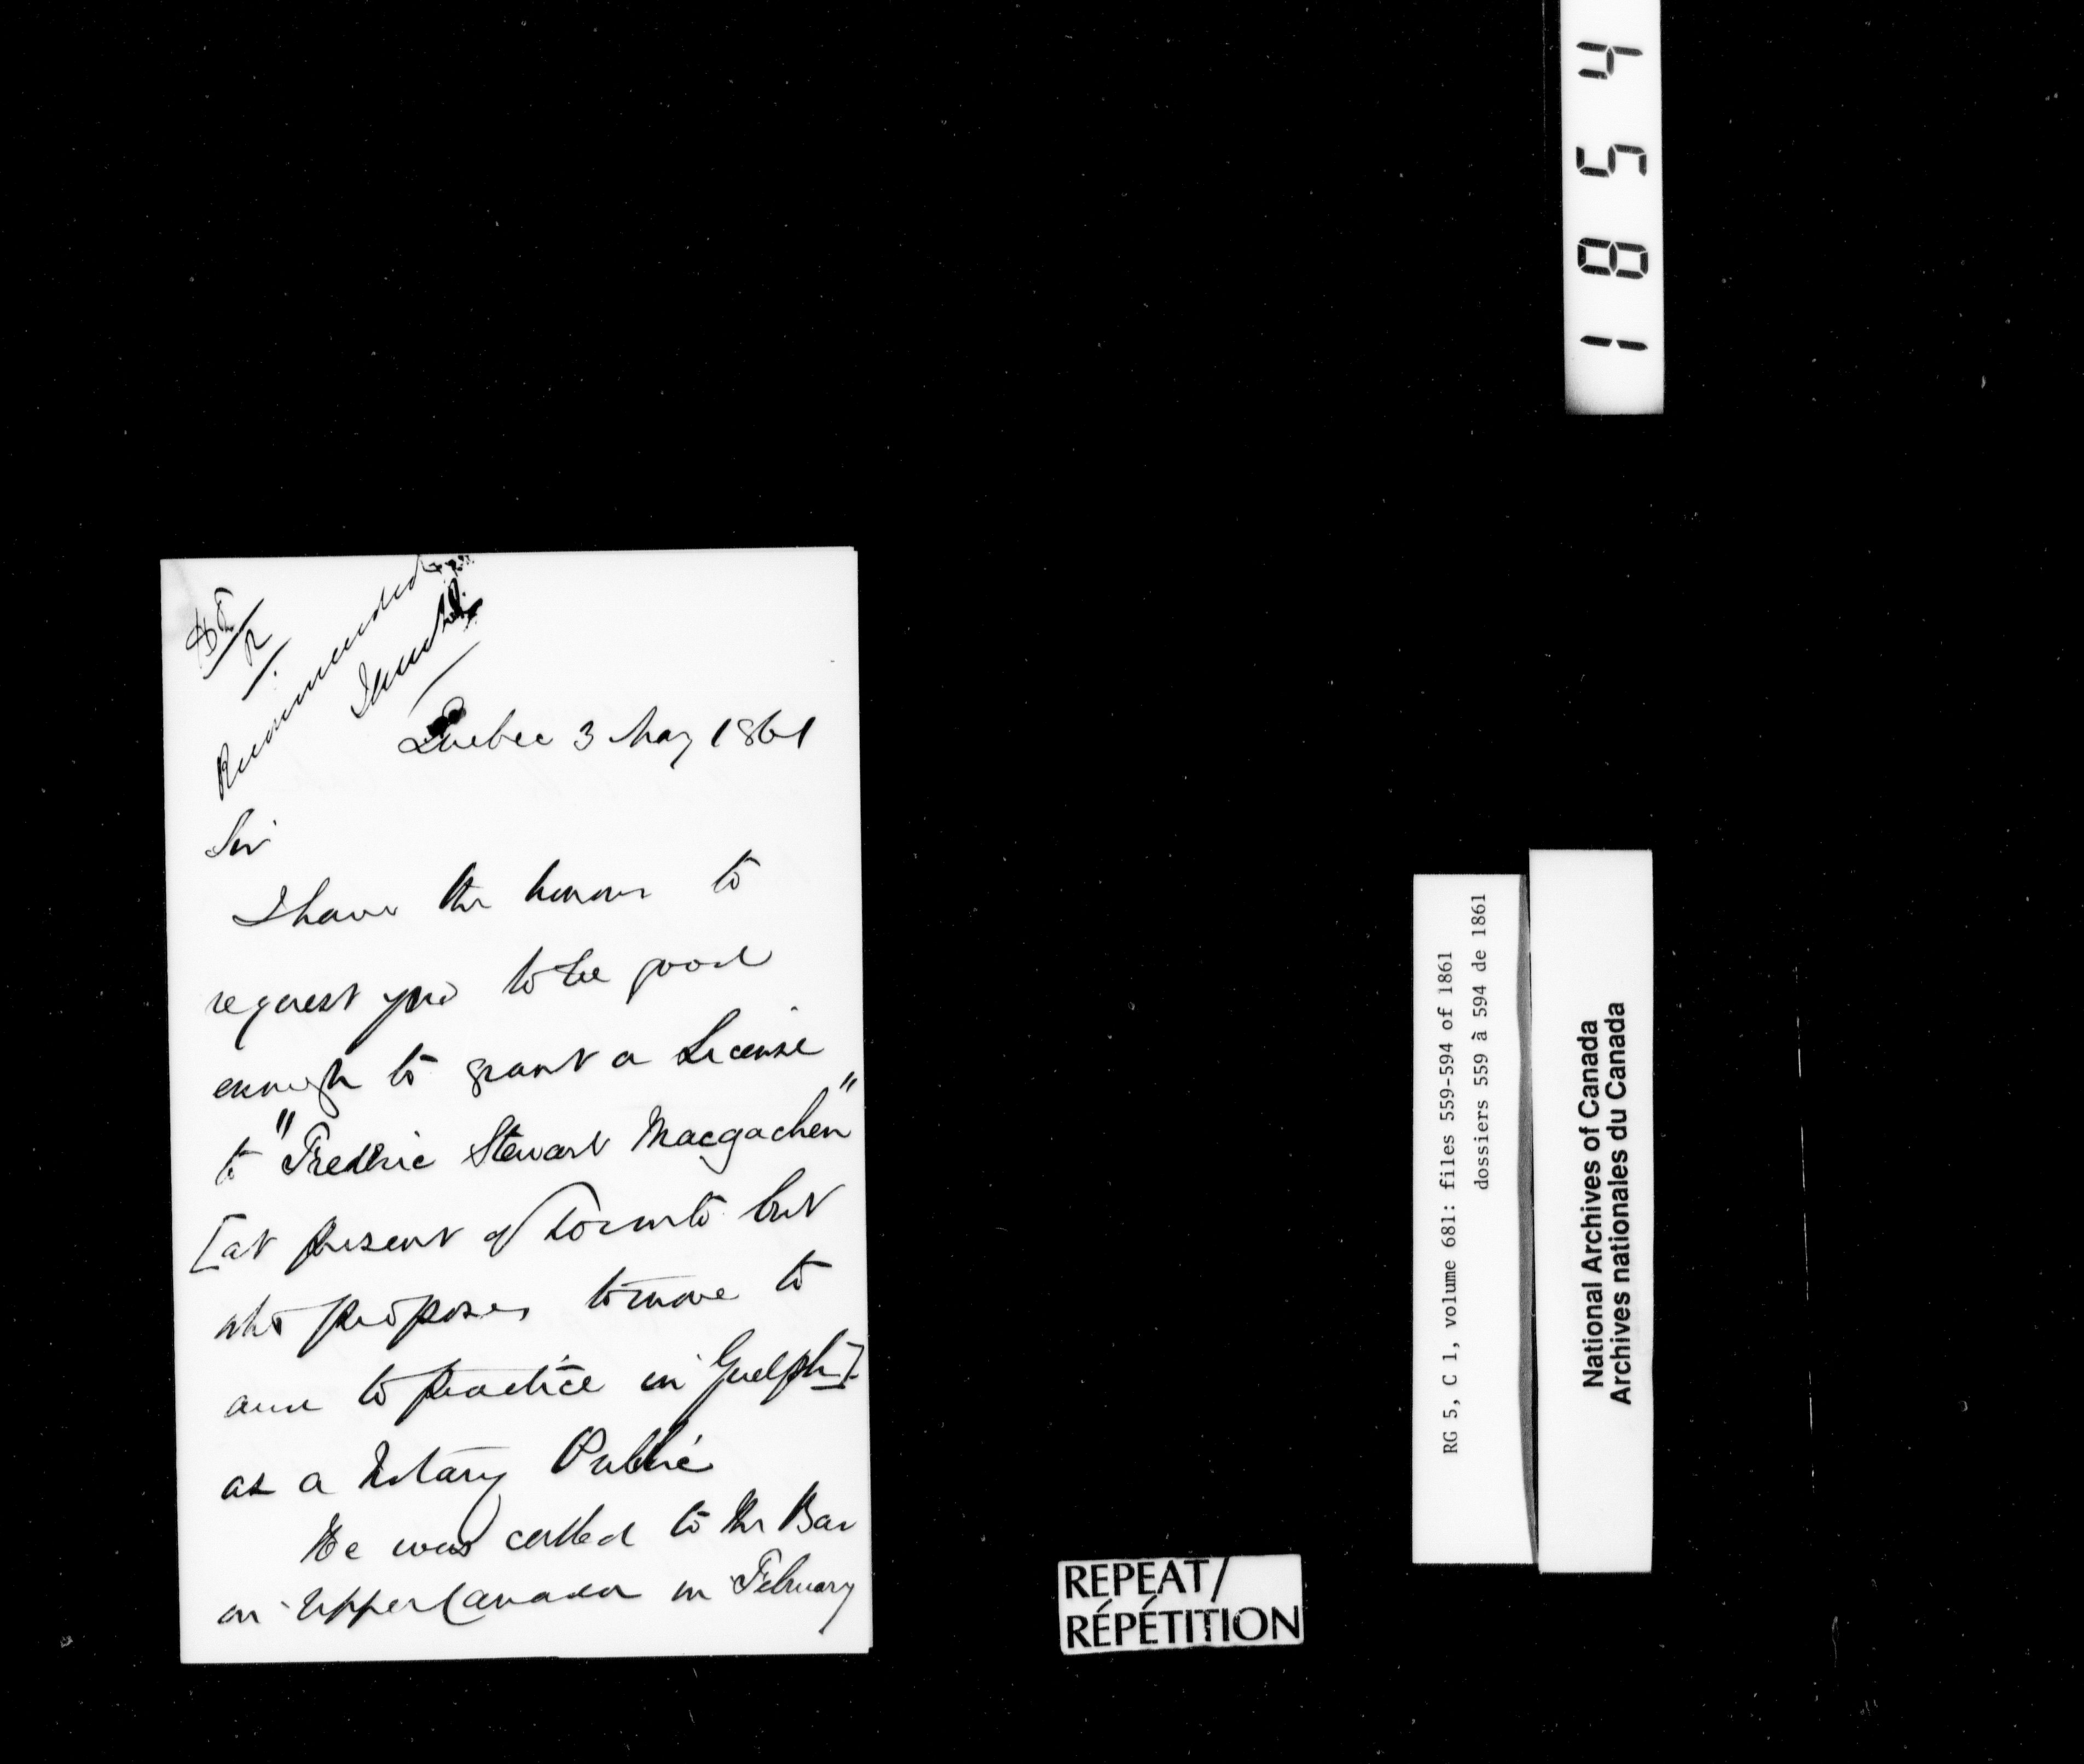 Recommended
Quebec 3 May 1861
Sir
I have the honour to
request you to be good
enough to grant a License
to "Fredric Stewart Macgachen"
[at present of Toronto but
who proposes to move to
and to practice in Guelph]
as a Notary Public
He was called to the Bar
in Upper Canada in February
1854
RG 5, C 1, volume 681: files 559-594 of 1861
dossiers 559 à 594 de 1861
National Archives of Canada
Archives nationales du Canada
REPEAT/
RÉPÉTITION